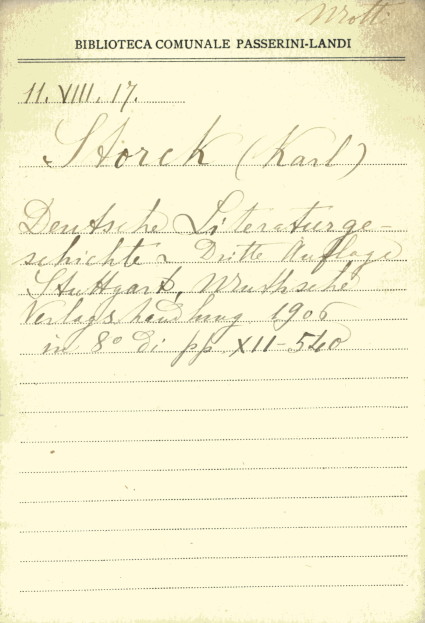 BIBLIOTECA COMUNALE PASSERINI-LANDI
11. VIII. 17.
Storck (Karl)
Deutsche Literaturge-
schichte - Dritte Auflage
Stuttgart, Muthsche
Verlagshandlung 1906
in 8° di pp XII-540